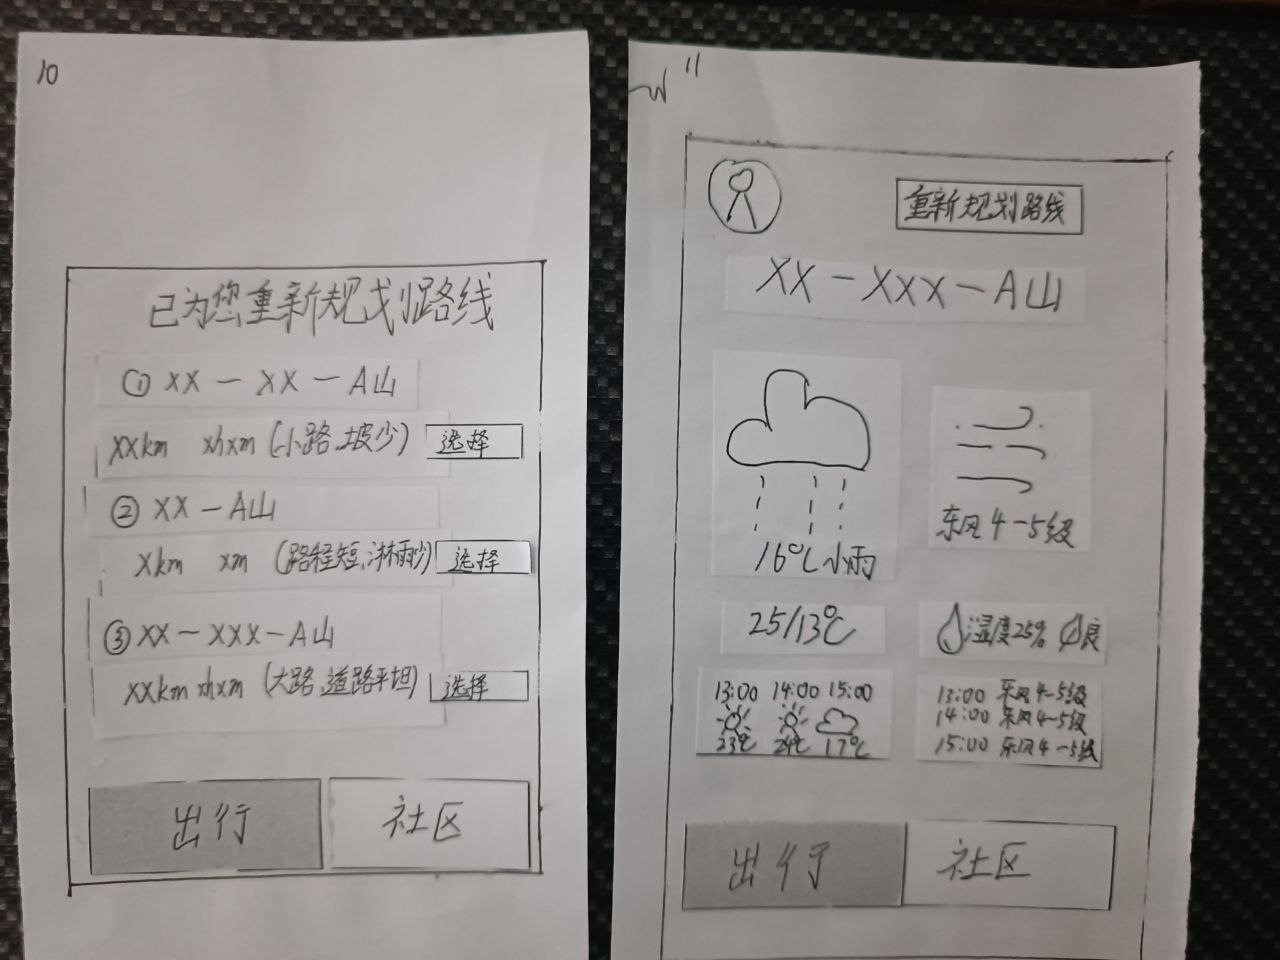 10
已为您重新规划路线
① XX — XX — A山
XXkm xhxm (小路、坡少) 选择
② XX — A山
Xkm xm (路程短、淋雨少) 选择
③ XX — XXX — A山
XXkm xhxm (大路、道路平坦) 选择
出行 社区
11
重新规划路线
XX — XXX — A山
16℃ 小雨
东风 4-5级
25/13℃
湿度25% 良
13:00 14:00 15:00
23℃ 24℃ 17℃
13:00 东风 4~5级
14:00 东风 4~5级
15:00 东风 4-5级
出行 社区